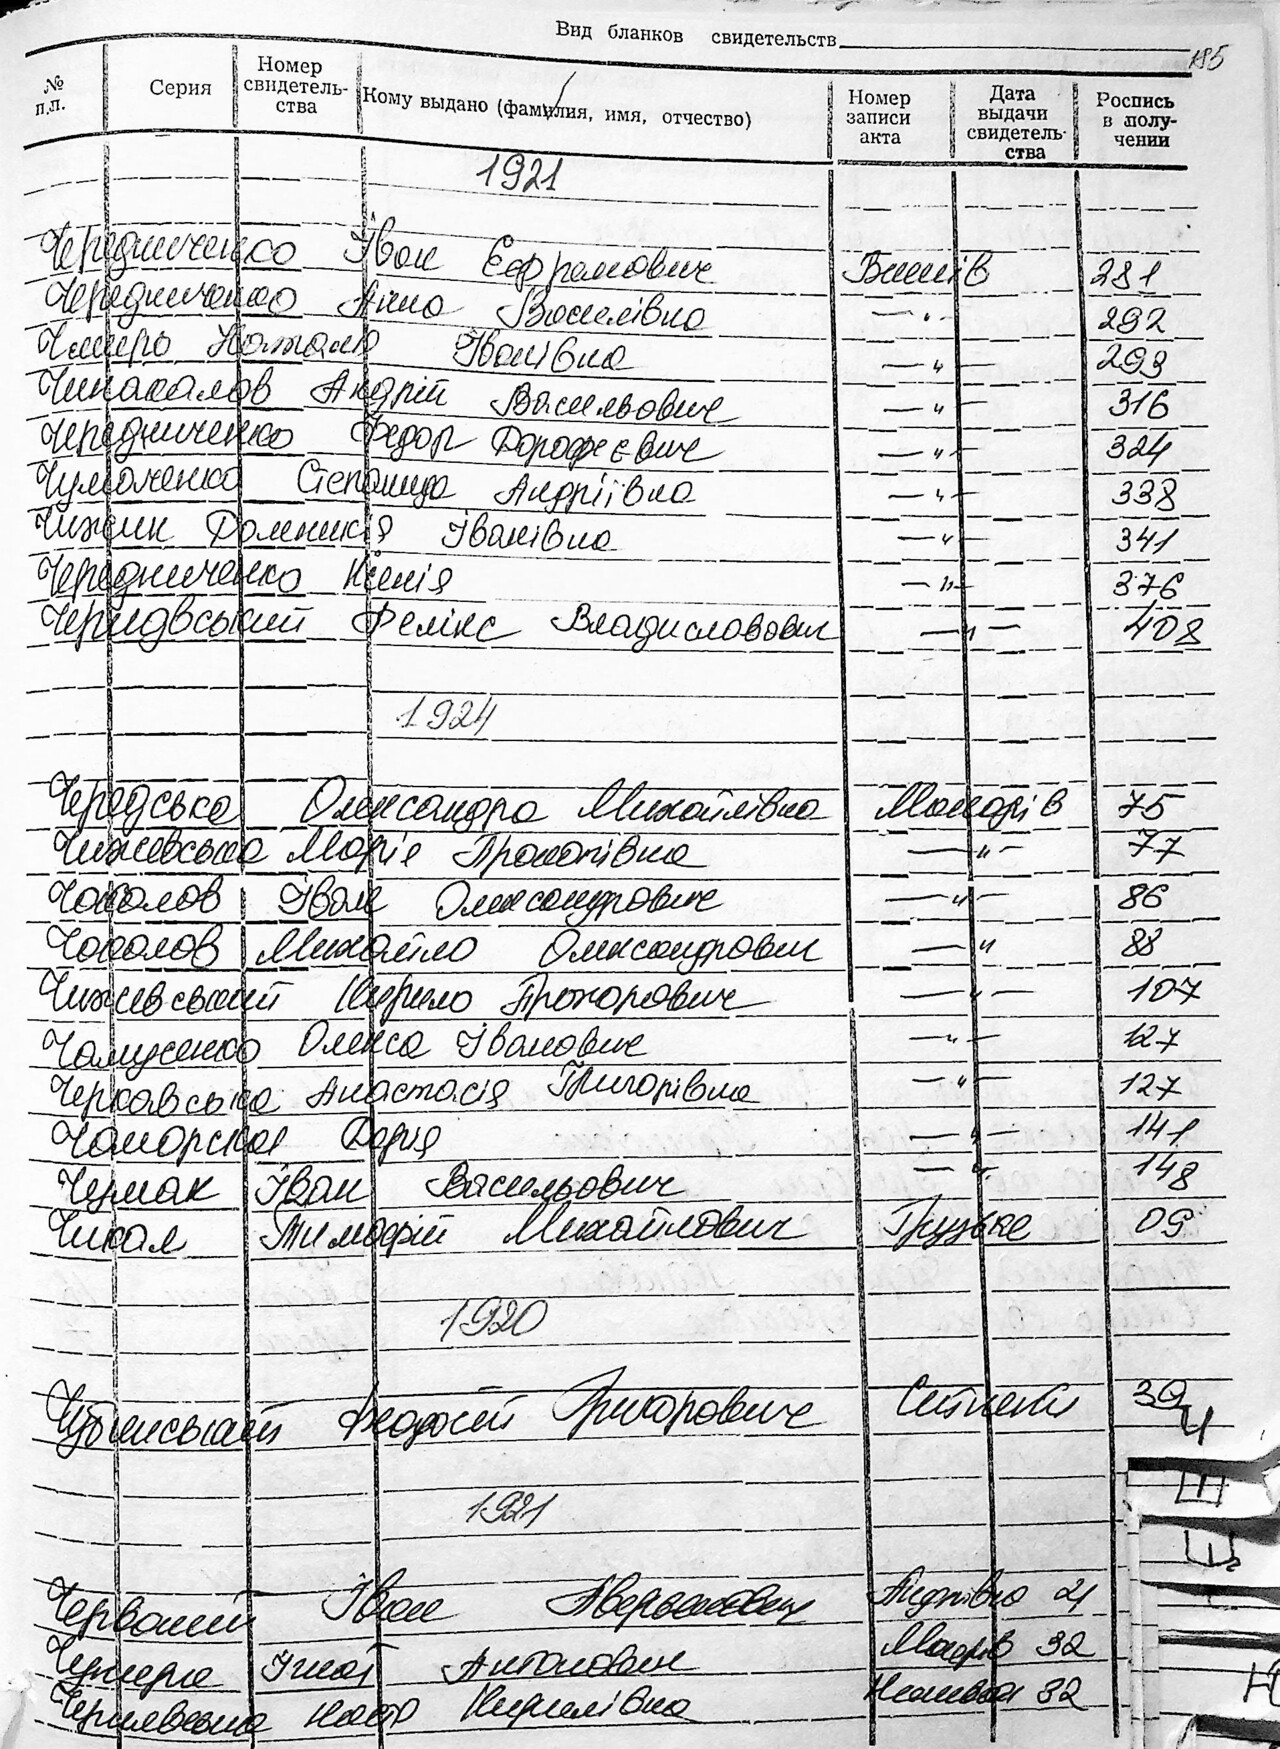 Вид бланков свидетельств
185
№ п.п. Серия Номер свидетель-ства Кому выдано (фамилия, имя, отчество) Номер записи акта Дата выдачи свидетель-ства Роспись в полу-чении
1921
Чередниченко Іван Єфремович 281
Чередниченко Анна Василівна —"— 292
Наталя Іванівна —"— 293
Андрій Васильович —"— 316
Чередниченко Федор Дорофєєвич —"— 324
Чумаченко Степанида Андріївна —"— 338
Чижик Доминикія Іванівна —"— 341
Чередниченко Ксенія —"— 376
Фелікс Владиславович —"— 408
1924
Олександра Михайлівна Макарів 75
Чижевська Марія Прокопівна —"— 77
Чоколов Іван Олександрович —"— 86
Чоколов Михайло Олександрович —"— 88
Чижевський Кирило Прохорович —"— 107
Олекса Іванович —"— 127
Черкавська Анастасія Григорівна —"— 127
Дарія —"— 141
Чермак Іван Васильович —"— 148
Чикал Тимофій Михайлович Грузьке 09
1920
Чубинський Феодосій Григорович Ситняки 39
Ч
1921
Іван 21
Ігнат Антонович Макарів 32
Чернявська Кирилівна 32